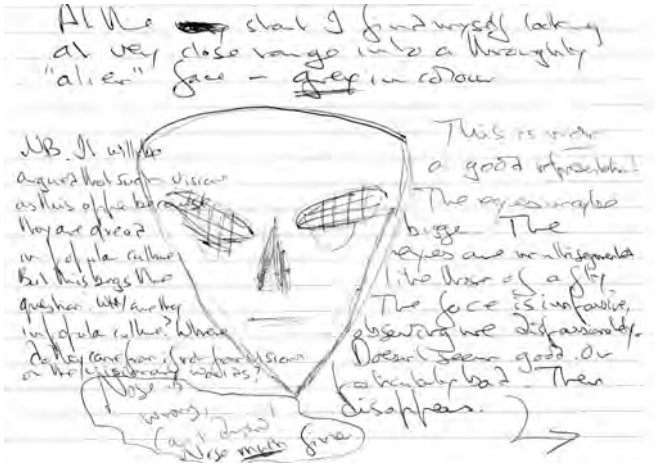 At the start I find myself looking
at very close range into a thoroughly
"alien" face – grey in colour
NB. It will be
argued that such visions
as this appear because
they are already
in popular culture
But this begs the
question. Why are they
in popular culture? Where
do they come from if not from visions
or the visionary worlds?
This is not
a good representation!
The eyes maybe
bigger The
eyes are multisegmented
like those of a fly.
The face is impassive,
observing me dispassionately.
Doesn't seem good or
particularly bad. Then
disappears.
Nose is
wrong,
can't draw
Nose much finer